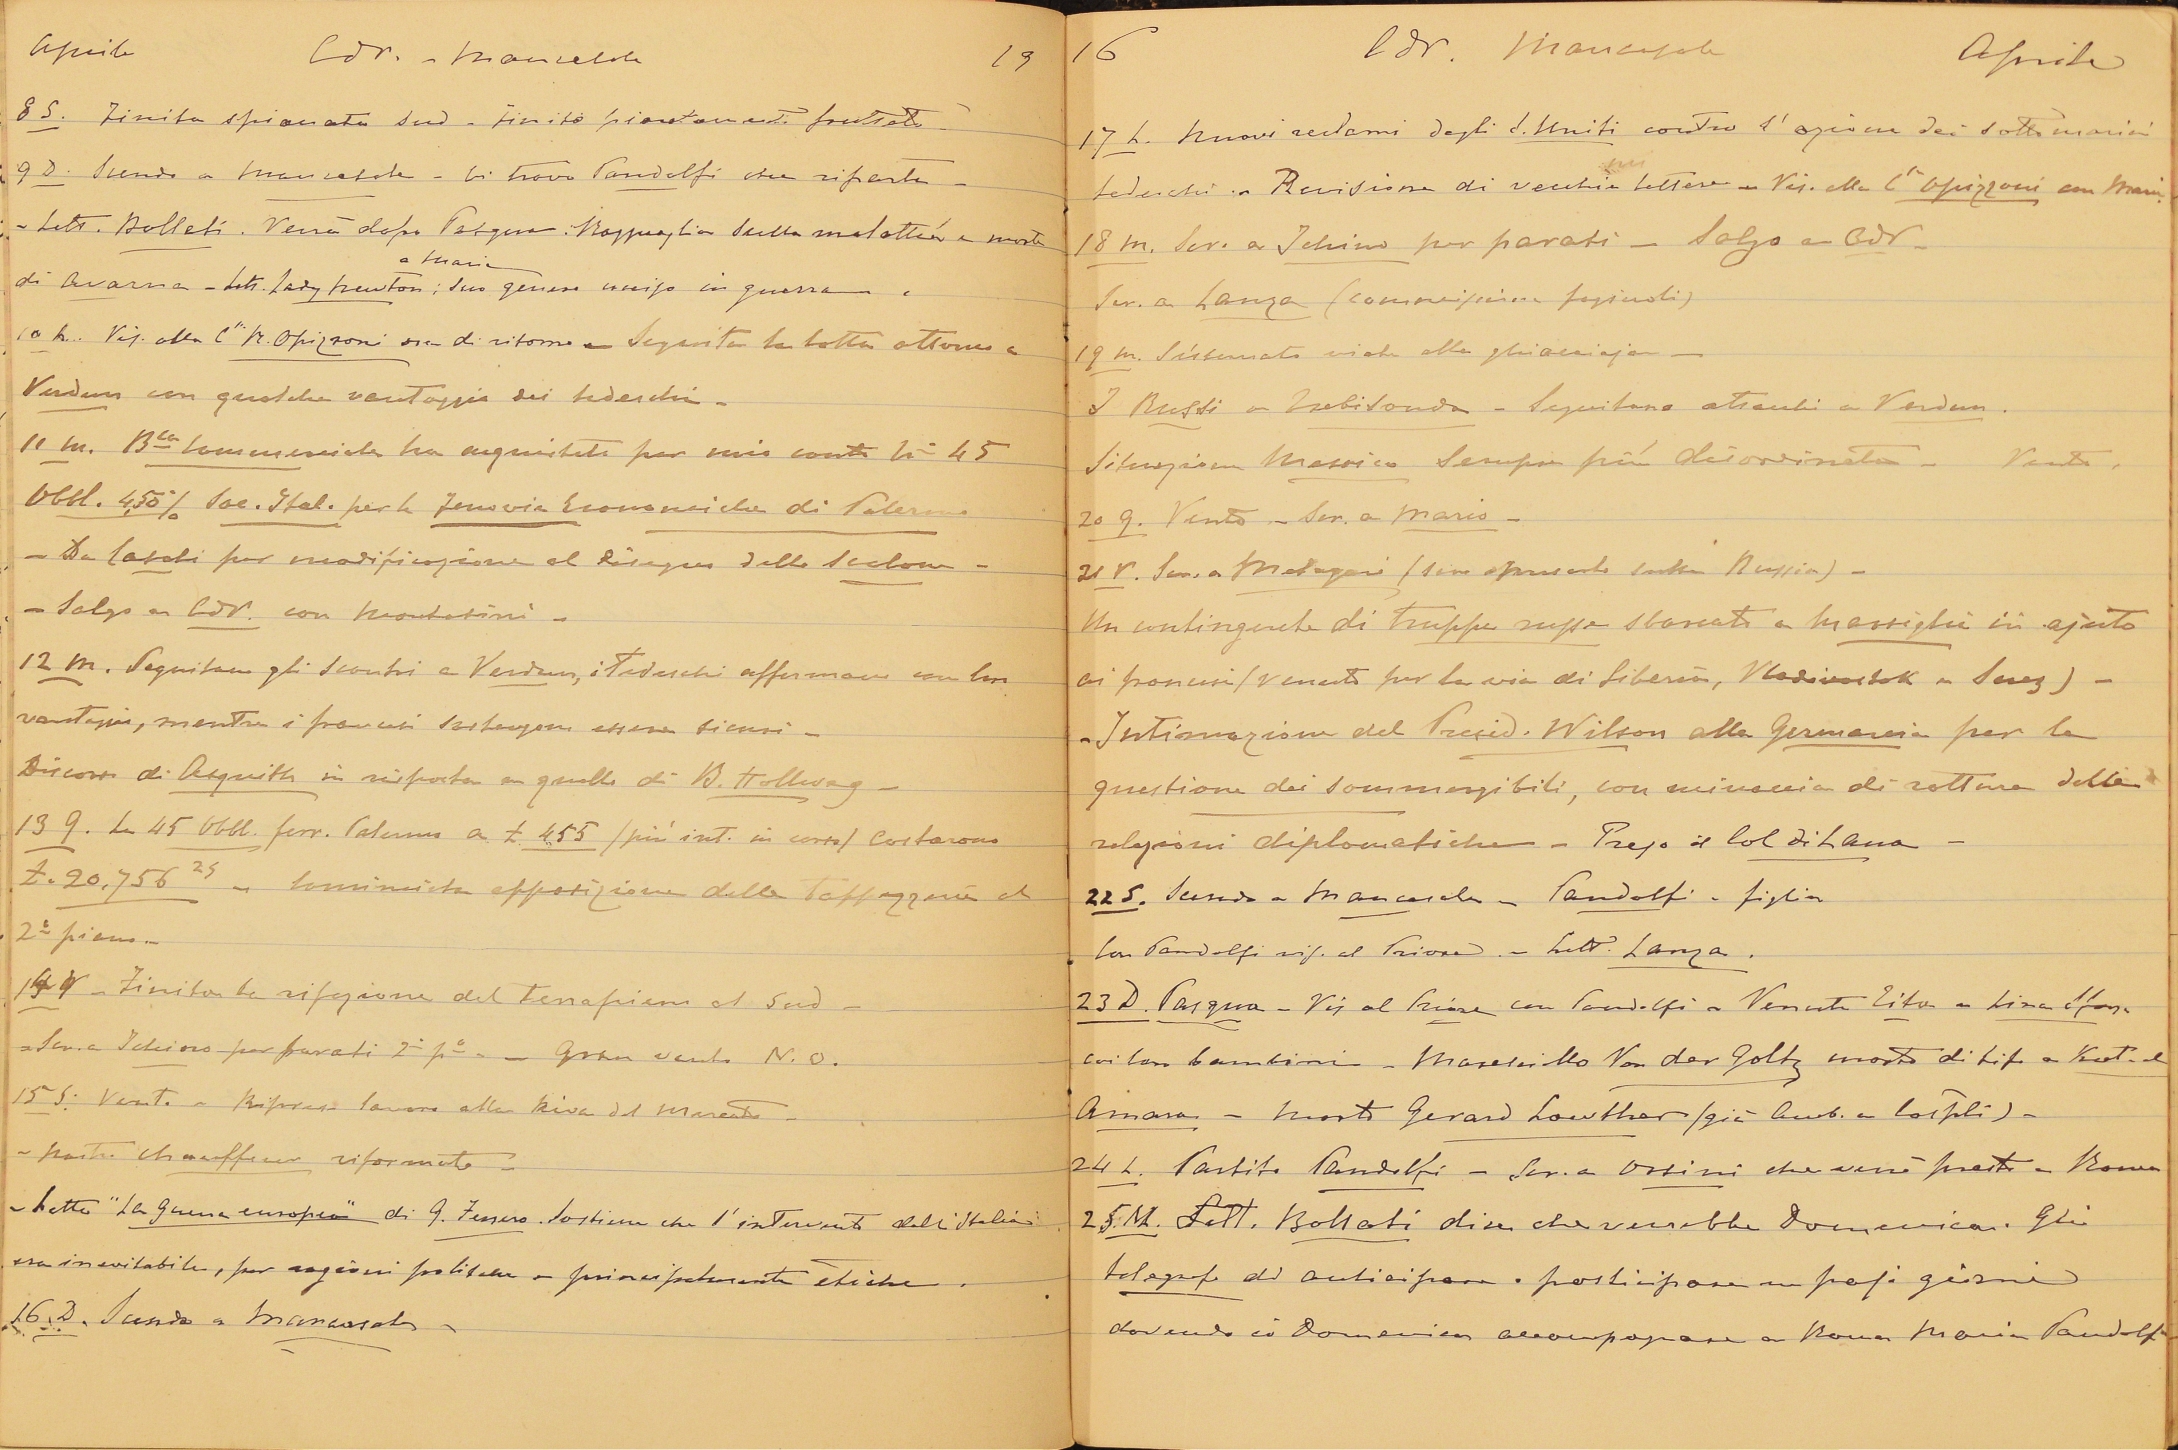 Aprile CdV. - Mancasale 19
8 S. Finita spianata Sud - Finito piantamenti fruttati -
9 D. Scendo a Mancasale - Vi trovo Pandolfi che riparte -
- Lett. Bollati. Verrà dopo Pasqua. Ragguaglia sulla malattia e morte
a Maria
di Avarna - Lett. Lady Newton: suo genero ucciso in guerra.
10 L. Vis. alla C.sa R. Opizzoni ora di ritorno - Seguita la lotta attorno a
Verdun con qualche vantaggio dei tedeschi -
11 M. B.ca Commerciale ha acquistato per mio conto N° 45
Obbl. 4,50% Soc. Ital. per le Ferrovie Economiche di Palermo
- Da Caschi per modificazione al disegno dello Scalone -
- Salgo a CdV. con Montesini -
12 M. Seguitano gli scontri a Verdun, i Tedeschi affermano con loro
vantaggio, mentre i francesi sostengono essere sicuri -
Discorso di Asquith in risposta a quello di B. Hollweg -
13 G. Le 45 Obbl. ferr. Palermo a £ 455 (più int. in corso) costarono
£. 20,756 25 - Cominciata apposizione delle tappezzerie al
2° piano -
14 V - Finita la rifazione del terrapieno al Sud -
- Scr. a Ichino per parati 2° p° - - Gran vento N. O.
15 S. Vento - Ripreso lavoro alla Riva del
- chauffeur riformato -
- Letto "La Guerra europea" di G. Ferrero. Sostiene che l'intervento dell'Italia
era inevitabile, per ragioni politiche e principalmente etiche.
16. D. Scendo a Mancasale -
16 CdV. Mancasale Aprile
17 L. Nuovi reclami degli S. Uniti contro l'azione dei sottomarini
tedeschi - Revisione di vecchie lettere - Vis. alla C.sa Opizzoni con Maria
18 M. Scr. a Ichino per parati - Salgo a CdV -
Scr. a Lanza (commissione fagiuoli)
19 M. Sistemato viale alla ghiacciaja -
I Russi a Trebisonda - Seguitano attacchi a Verdun.
Situazione Messico sempre più disordinata - Vento.
20 G. Vento - Scr. a Mario -
21 V. Scr. a (suo opuscolo sulla Russia) -
Un contingente di truppe russe sbarcato a Marsiglia in ajuto
ai francesi (venuto per la via di Siberia, Vladivostok e Suez) -
- Intimazione del Presid. Wilson alla Germania per la
questione dei sommergibili, con minaccia di rottura delle
relazioni diplomatiche - Preso il Col di Lana -
22 S. Scendo a Mancasale - Pandolfi - figlia
Con Pandolfi vis. al Priore - Lett. Lanza.
23 D. Pasqua - Vis al Priore con Pandolfi - Venute Tita e Lina
coi loro bambini - Maresciallo Von der Goltz morto di tifo a Kut-el
Amara - Morto Gerard Lowther (già Amb. a Cospli) -
24 L. Partito Pandolfi - Scr. a Orsini che verrò presto a Roma
25. M. Lett. Bollati dice che verrebbe Domenica. Gli
telegrafo di anticipare o posticipare un pajo giorni
dovendo io Domenica accompagnare a Roma Maria Pandolfi